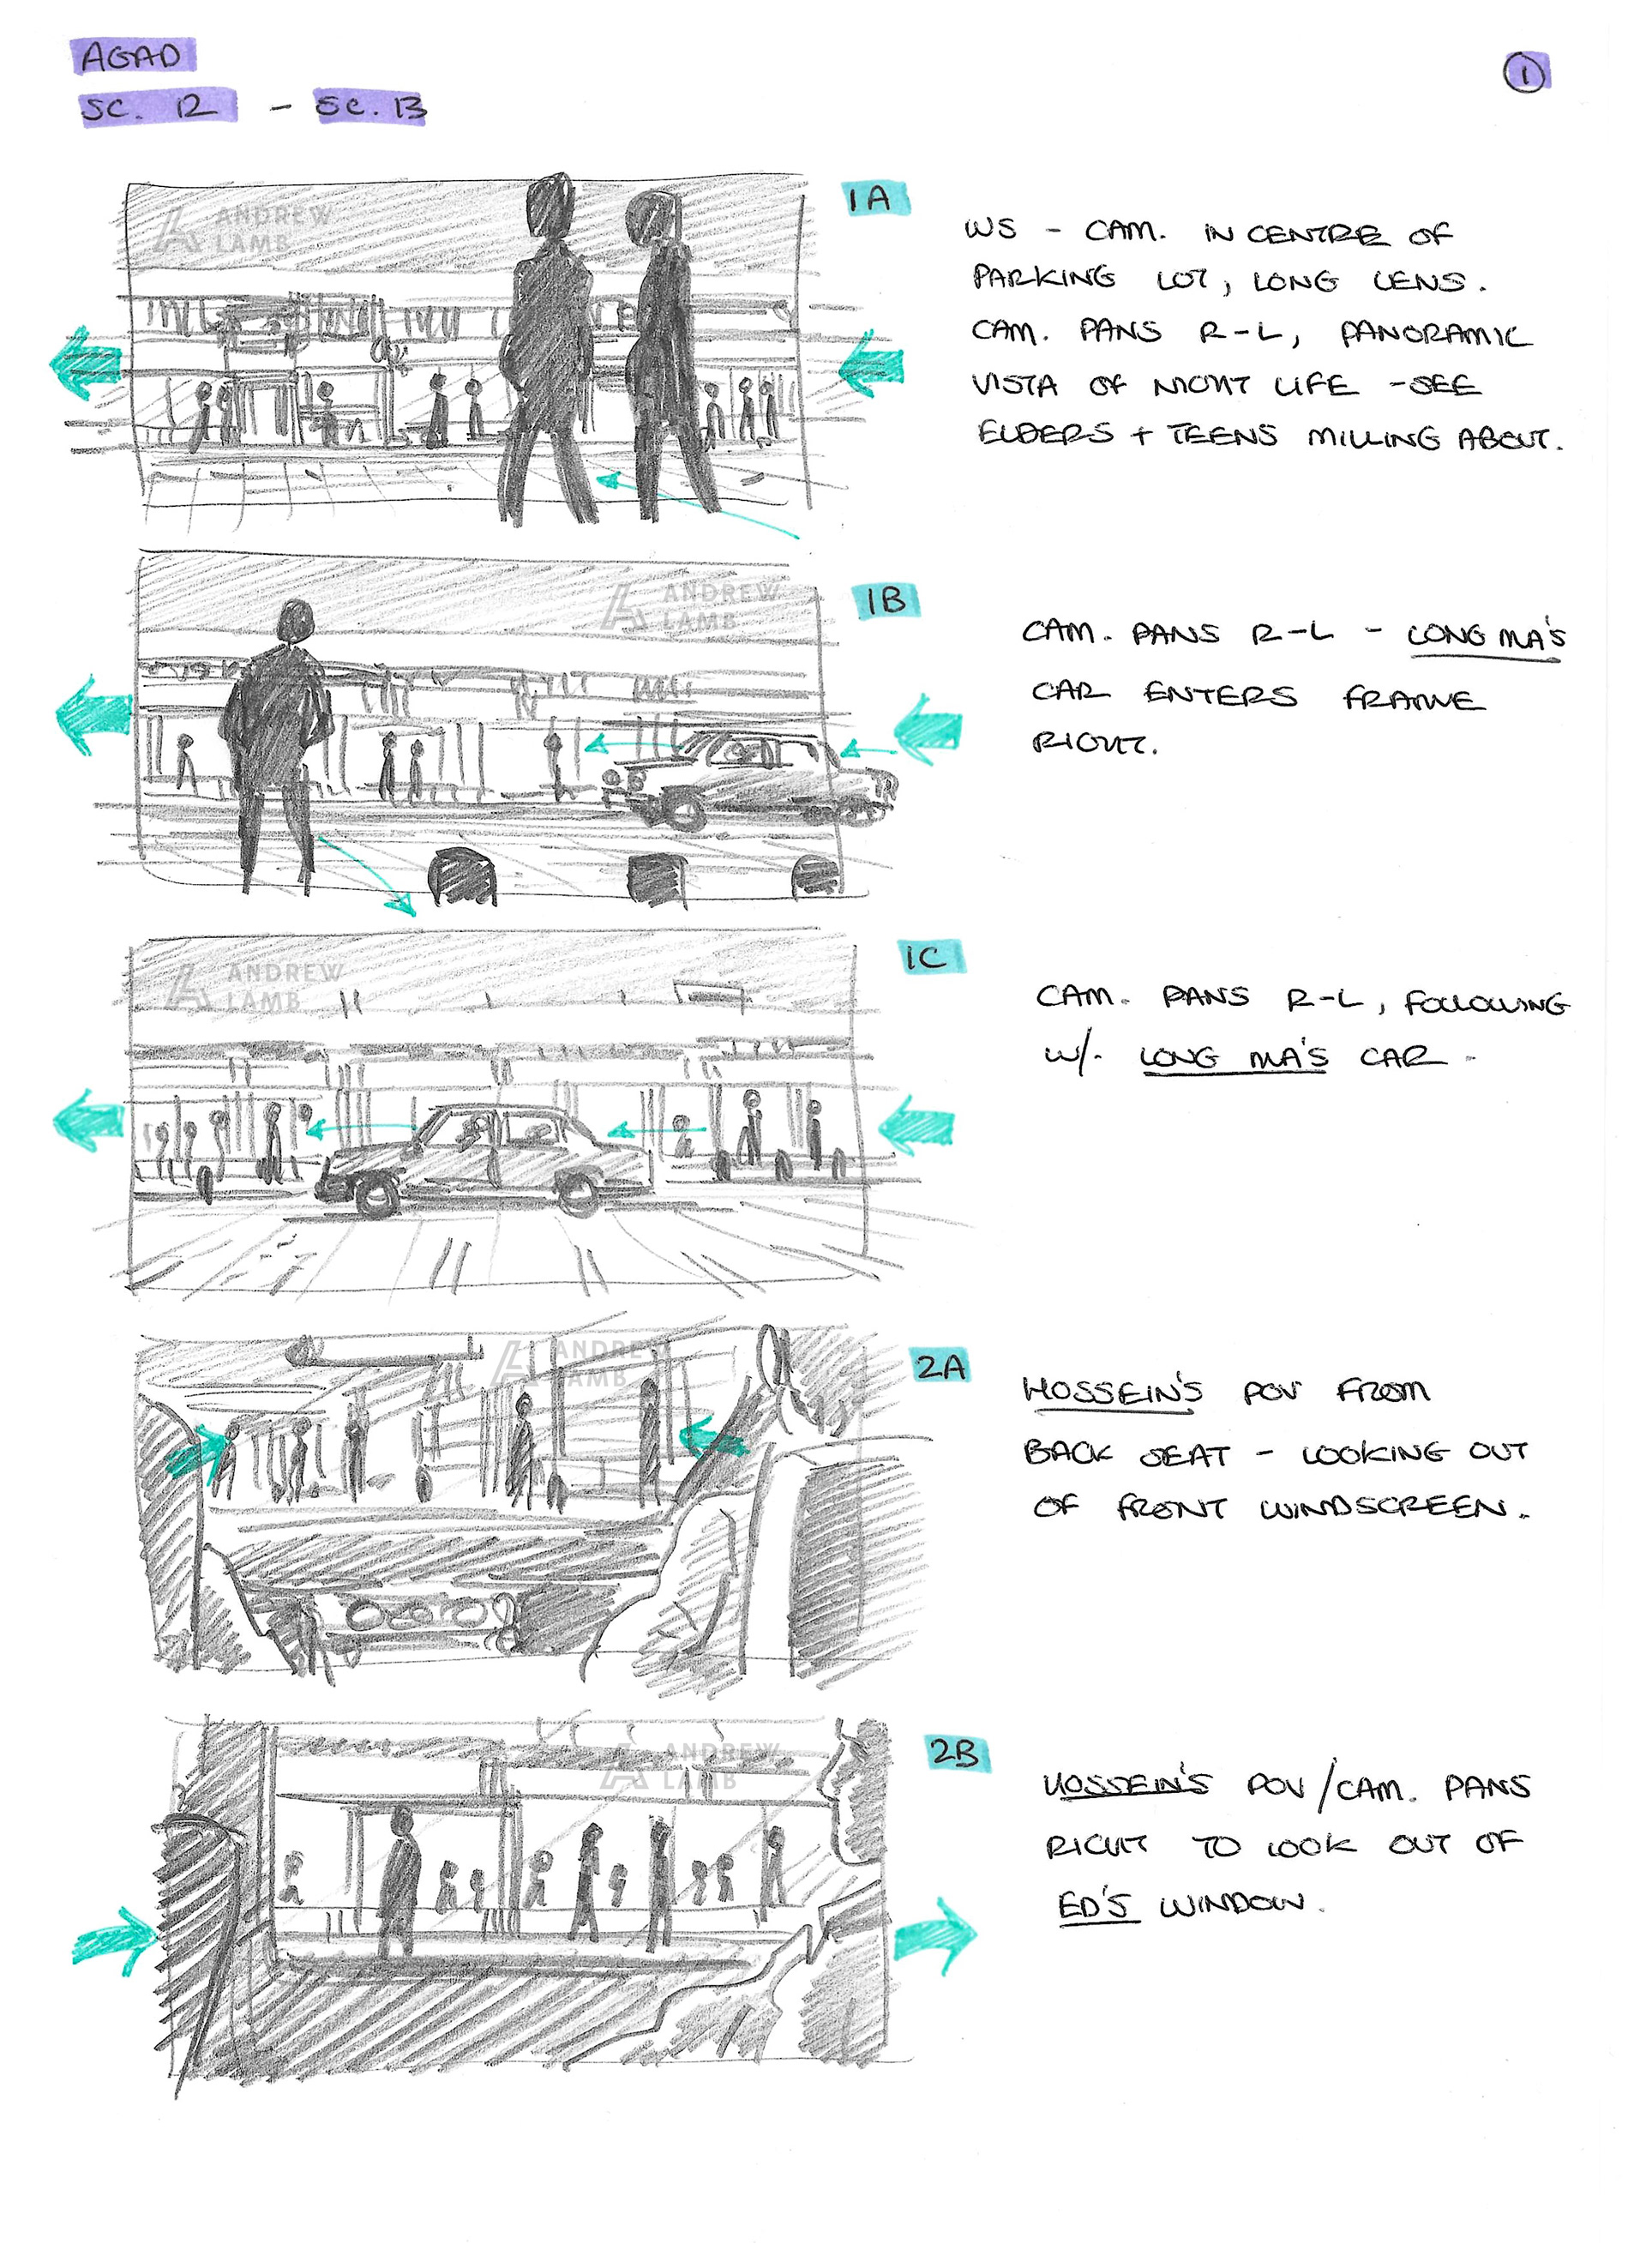 AGAD
SC. 12 - SC. 13
1
1A
WS - CAM. IN CENTRE OF
PARKING LOT, LONG LENS.
CAM. PANS R-L, PANORAMIC
VISTA OF NIGHT LIFE - SEE
ELDERS + TEENS MILLING ABOUT.
ANDREW
LAMB
1B
CAM. PANS R-L - LONG MA'S
CAR ENTERS FRAME
RIGHT.
ANDREW
LAMB
1C
CAM. PANS R-L, FOLLOWING
W/. LONG MA'S CAR -
ANDREW
LAMB
2A
HOSSEIN'S POV FROM
BACK SEAT - LOOKING OUT
OF FRONT WINDSCREEN.
ANDREW
LAMB
2B
HOSSEIN'S POV/CAM. PANS
RIGHT TO LOOK OUT OF
ED'S WINDOW.
ANDREW
LAMB